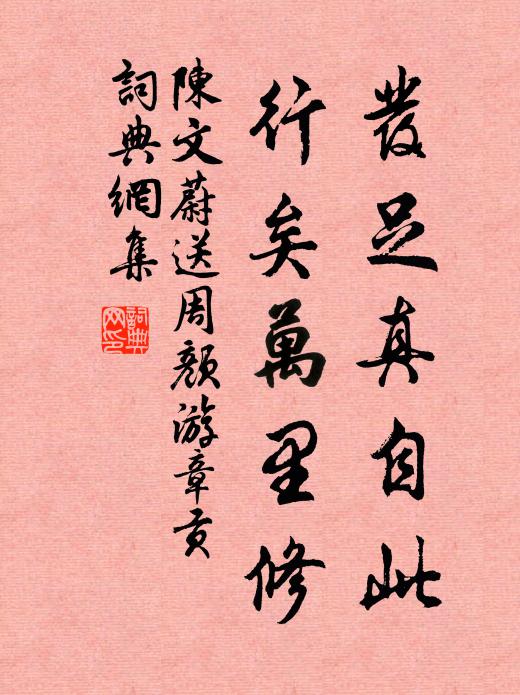 發足真自此
行矣萬里修
陳文蔚送周顏游章貢
詞典網集
詞典网印